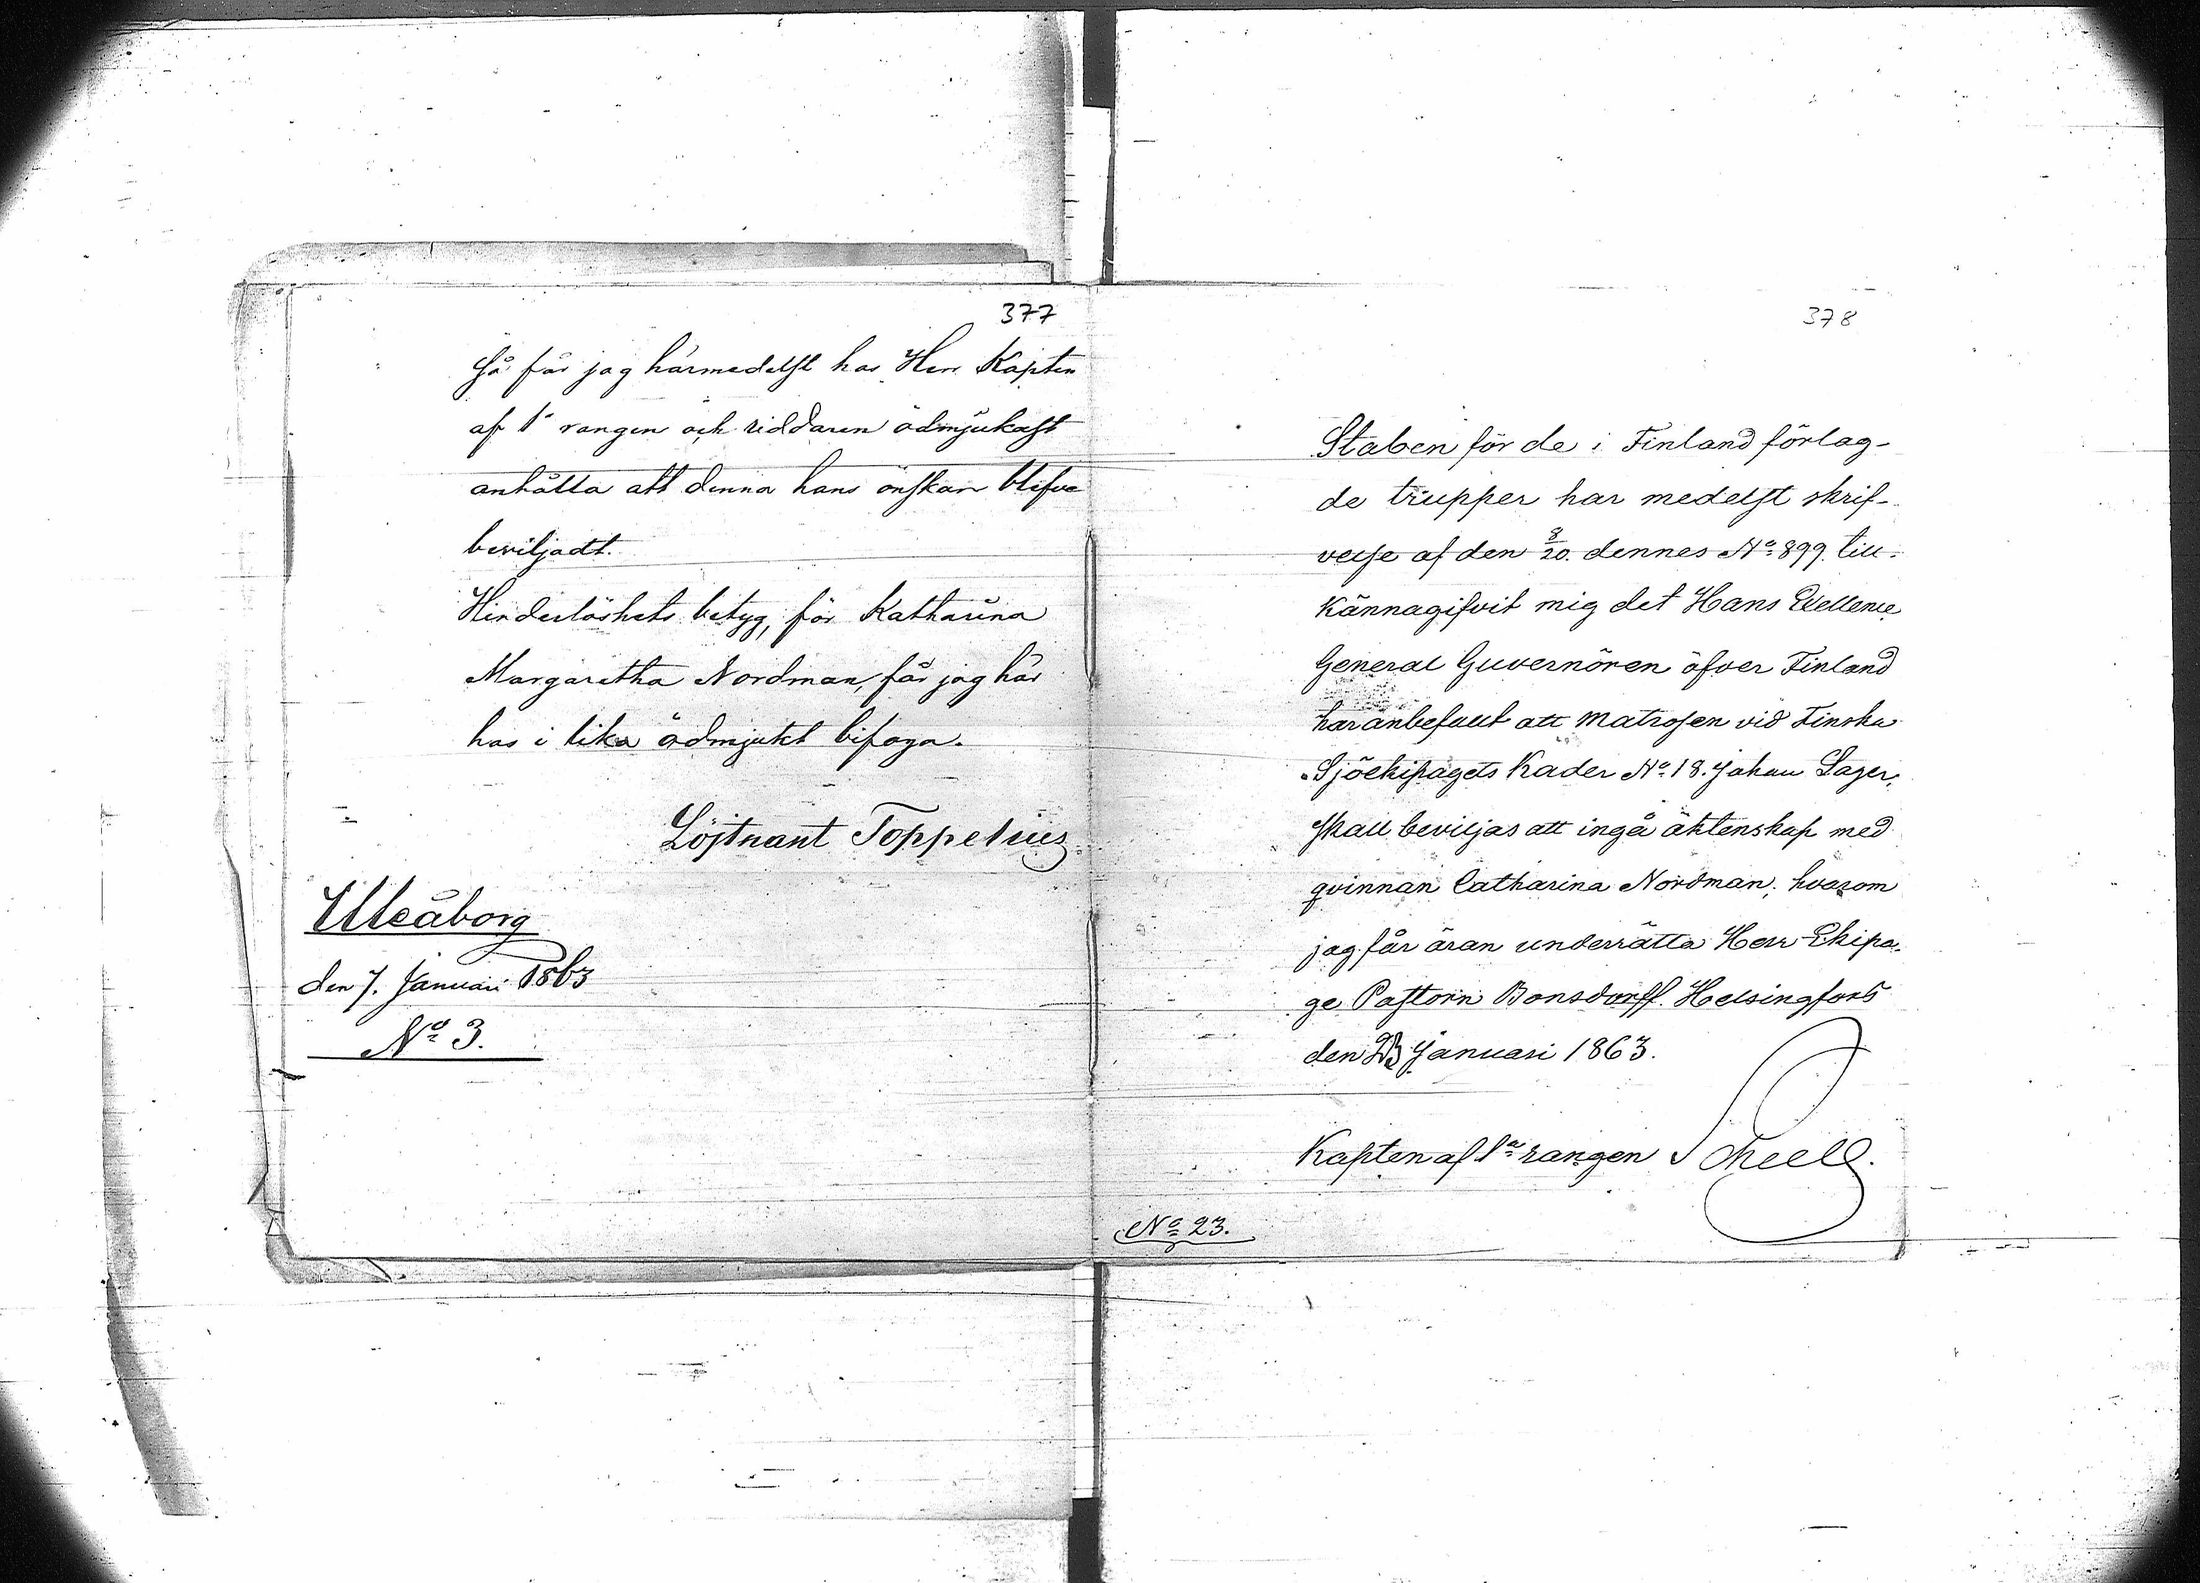 377
så får jag härmedelst hos Herr Kapten
af 1a rangen och riddaren ödmjukast
anhålla att denna hans önskan blifve
beviljadt.
Hinderlöshets betyg, för Katharina
Margaretha Nordman, får jag här
hos i lika ödmjukt bifoga.
Löjtnant Toppelius
Uleåborg
den 7. Januari 1863
No 3.
378
Staben för de i Finland förlag-
de trupper har medelst skrif-
velse af den 8/20. dennes No 899. till-
kännagifvit mig det Hans Exellence
General Guvernören öfver Finland
har anbefallt att matrosen vid Finska
Sjöekipagets Kader No 18. Johan Sager,
skall beviljas att ingå äktenskap med
qvinnan Catharina Nordman, hvarom
jag får äran underrätta Herr Ekipa-
ge Pastorn Bonsdorff. Helsingfors
den Januari 1863.
Kapten af 1a rangen Scheele.
No 23.